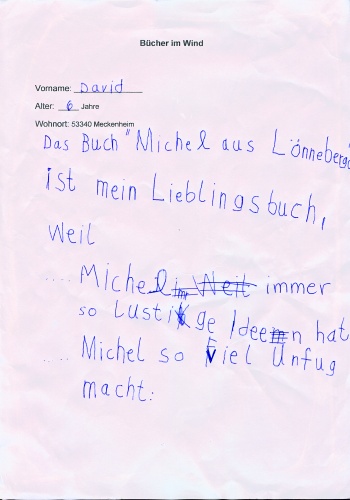 Bücher im Wind
Vorname: David
Alter: 6 Jahre
Wohnort: 53340 Meckenheim
Das Buch "Michel aus Lönneberga
ist mein Lieblingsbuch,
Weil
.... Michel im Weit immer
so Lustige Ideen hat
.... Michel so Viel Unfug
macht.